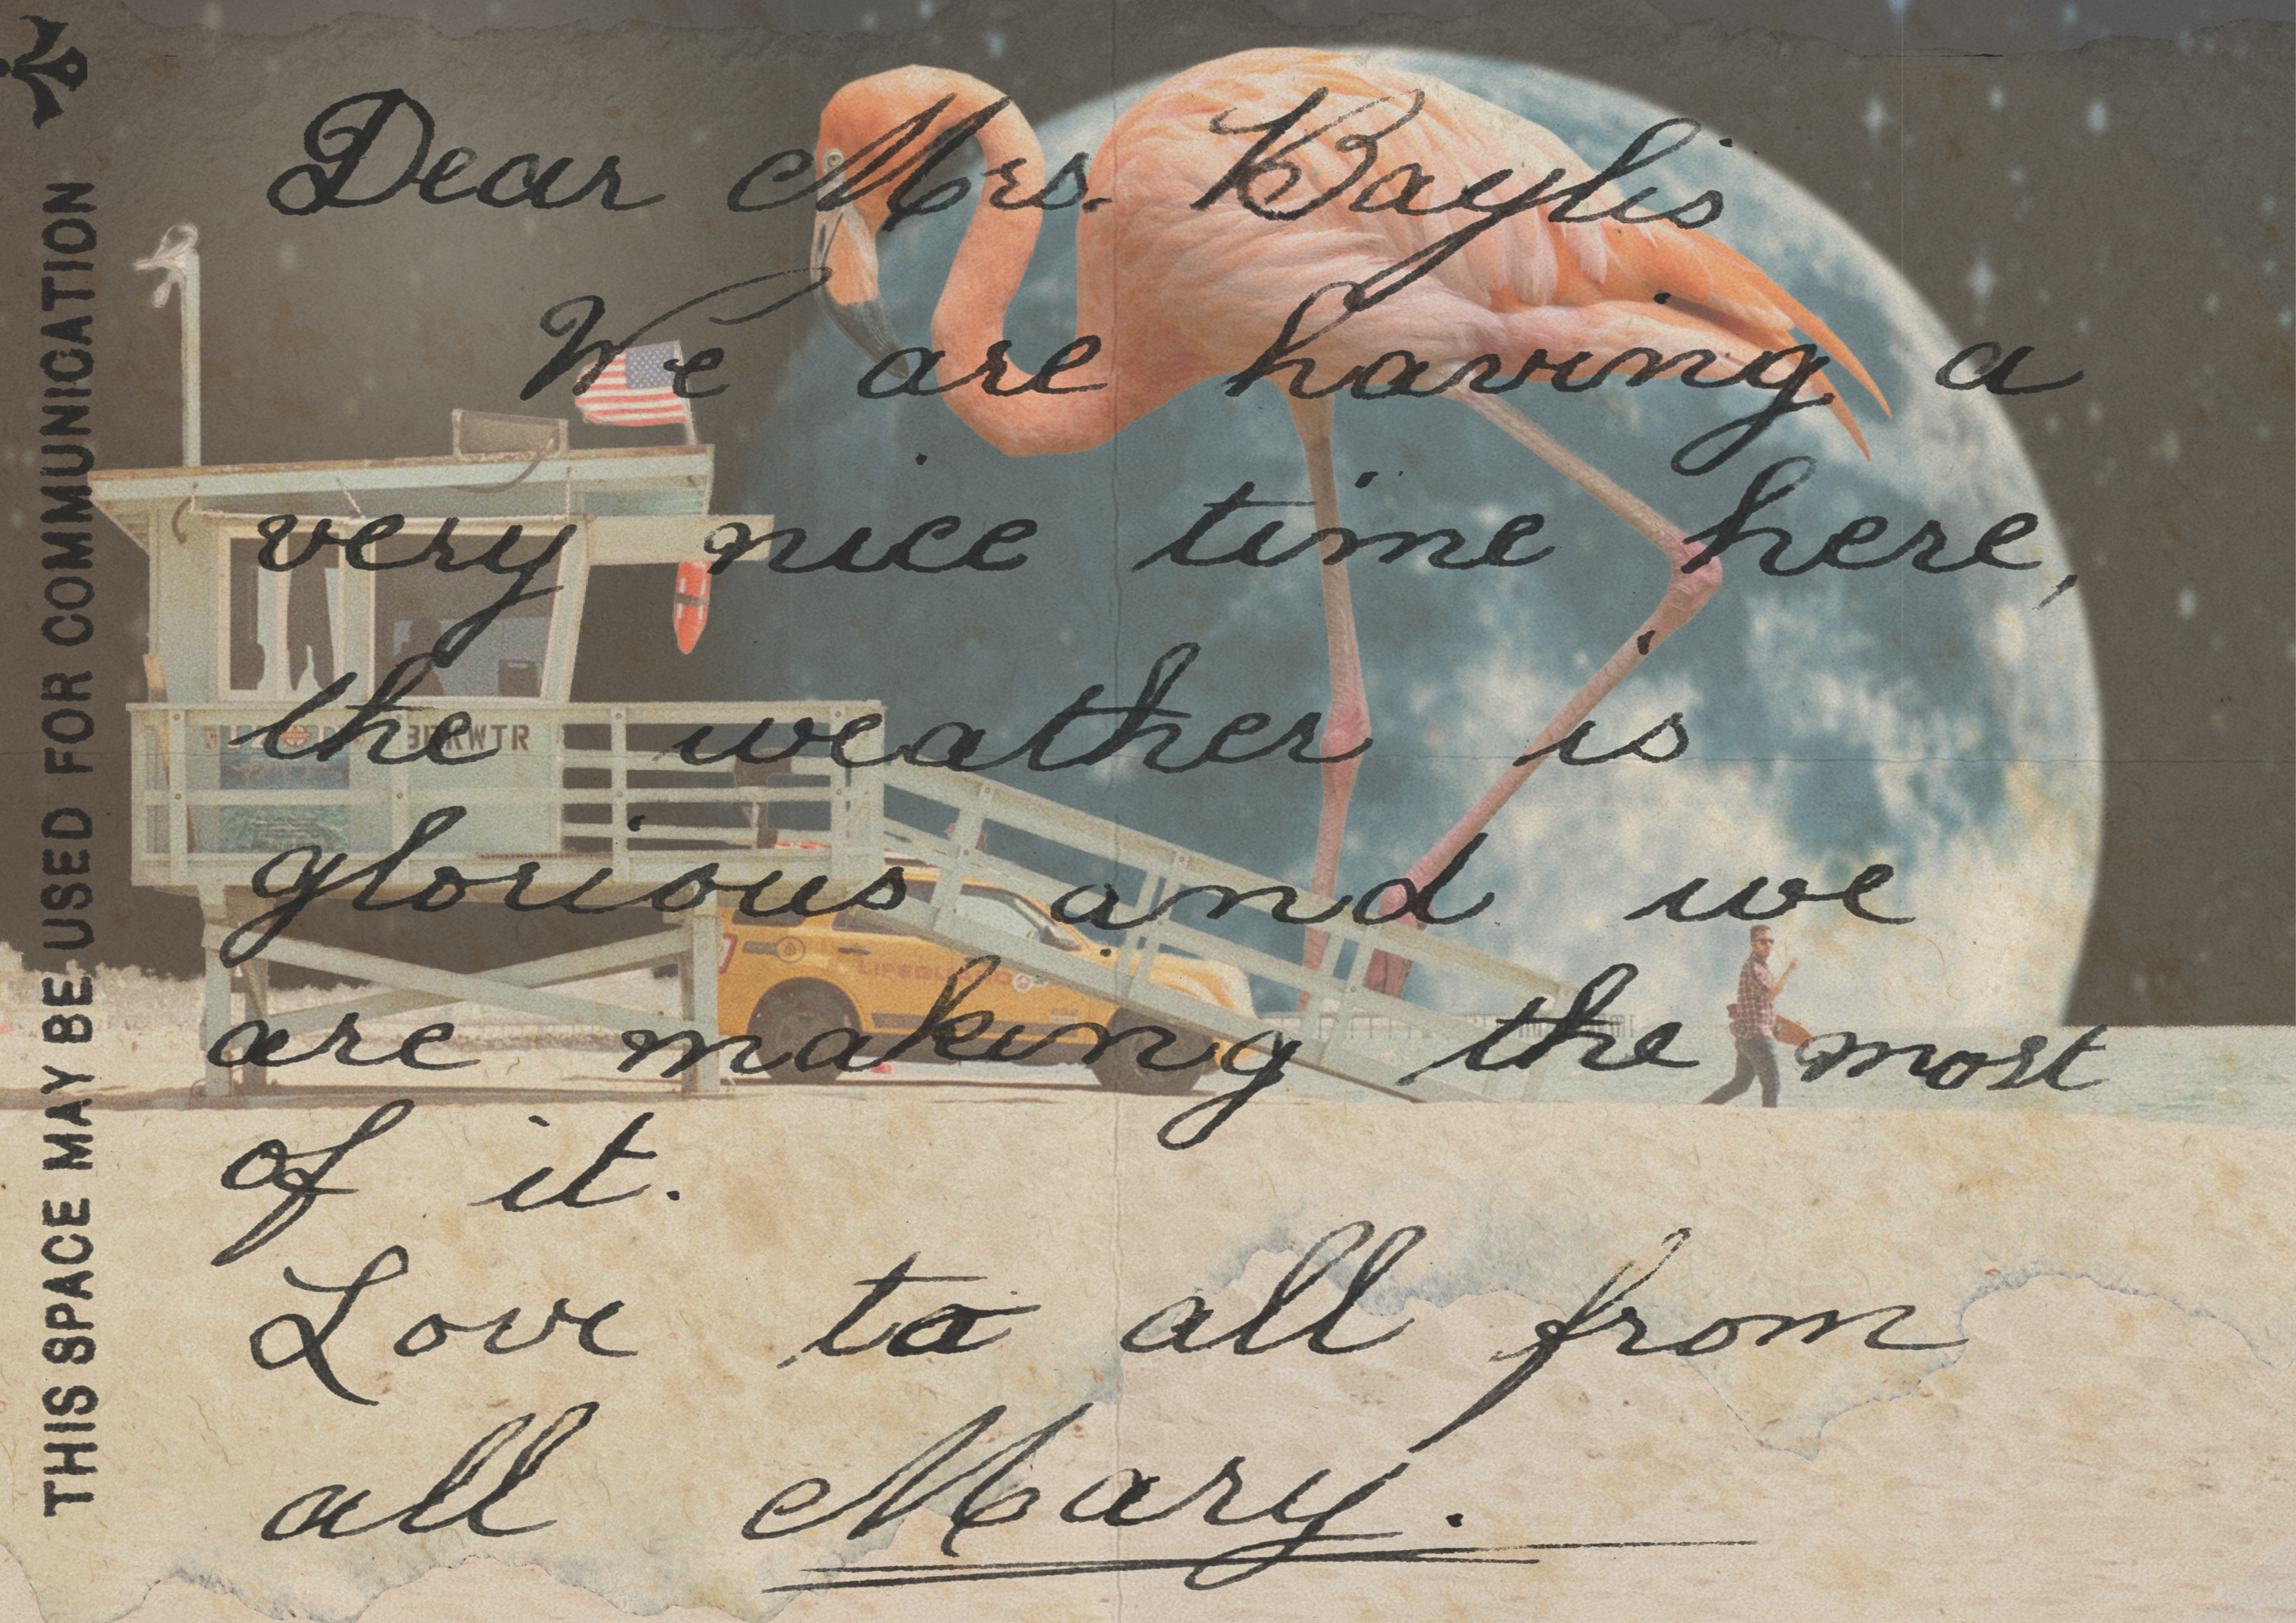 THIS SPACE MAY BE USED FOR COMMUNICATION
Dear Mrs. Baylis
We are having a
very nice time here,
the weather is
glorious and we
are making the most
of it.
Love to all from
all Mary.
BRKWTR
LIFEGUARD